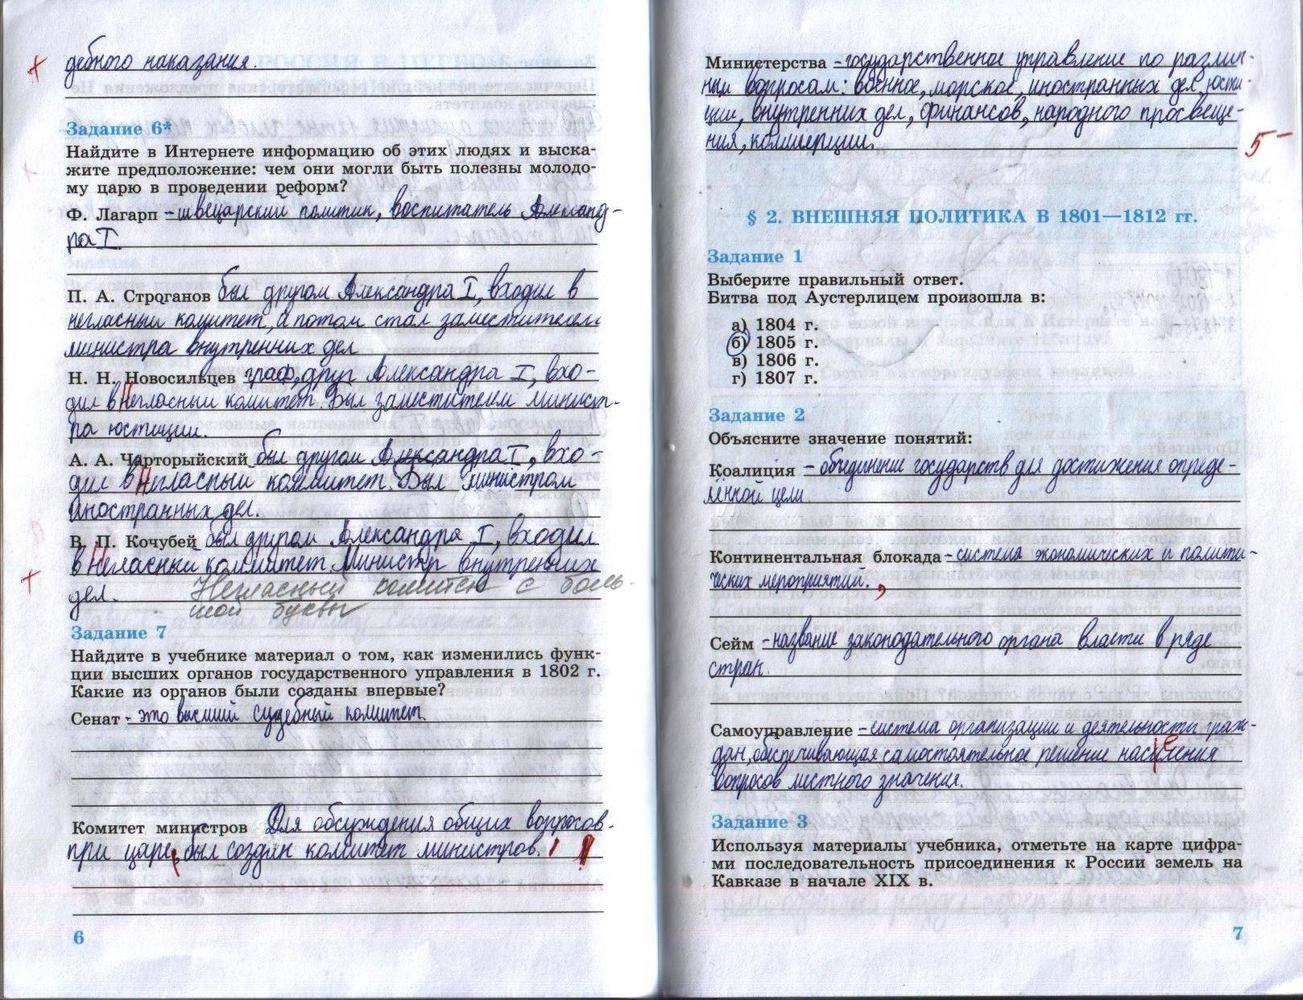 дебного наказания.
Задание 6*
Найдите в Интернете информацию об этих людях и выска-
жите предположение: чем они могли быть полезны молодо-
му царю в проведении реформ?
Ф. Лагарп - швецарский политик, воспитатель Александ-
ра I
П. А. Строганов был другом Александра I, входил в
негласный комитет, а потом стал заместителем
министра внутренних дел
Н. Н. Новосильцев граф, друг Александра I, вхо-
дил в Негласный комитет. Был заместителем минист-
ра юстиции.
А. А. Чарторыйский был другом Александра I, вхо-
дил в Негласный комитет. Был министром
иностранных дел.
В. П. Кочубей был другом Александра I, входил
в Негласный комитет. Министр внутренних
дел. Негласный комитет с боль-
шой буквы
Задание 7
Найдите в учебнике материал о том, как изменились функ-
ции высших органов государственного управления в 1802 г.
Какие из органов были созданы впервые?
Сенат - это высший судебный комитет.
Комитет министров Для обсуждения общих вопросов
при царе, был создан комитет министров.
6
Министерства - государственное управление по различ-
ным вопросам: военное, морское, иностранных дел, юсти-
ции, внутренних дел, финансов, народного просвеще-
ния, коммерции.
5-
§ 2. ВНЕШНЯЯ ПОЛИТИКА В 1801—1812 гг.
Задание 1
Выберите правильный ответ.
Битва под Аустерлицем произошла в:
а) 1804 г.
б) 1805 г.
в) 1806 г.
г) 1807 г.
Задание 2
Объясните значение понятий:
Коалиция - объединение государств для достижения опреде-
лённой цели
Континентальная блокада - система экономических и полити-
ческих мероприятий.
Сейм - название законодательного органа власти в ряде
стран.
Самоуправление - система организации и деятельности граж-
дан, обеспечивающая самостоятельное решение населения
вопросов местного значения.
Задание 3
Используя материалы учебника, отметьте на карте цифра-
ми последовательность присоединения к России земель на
Кавказе в начале XIX в.
7